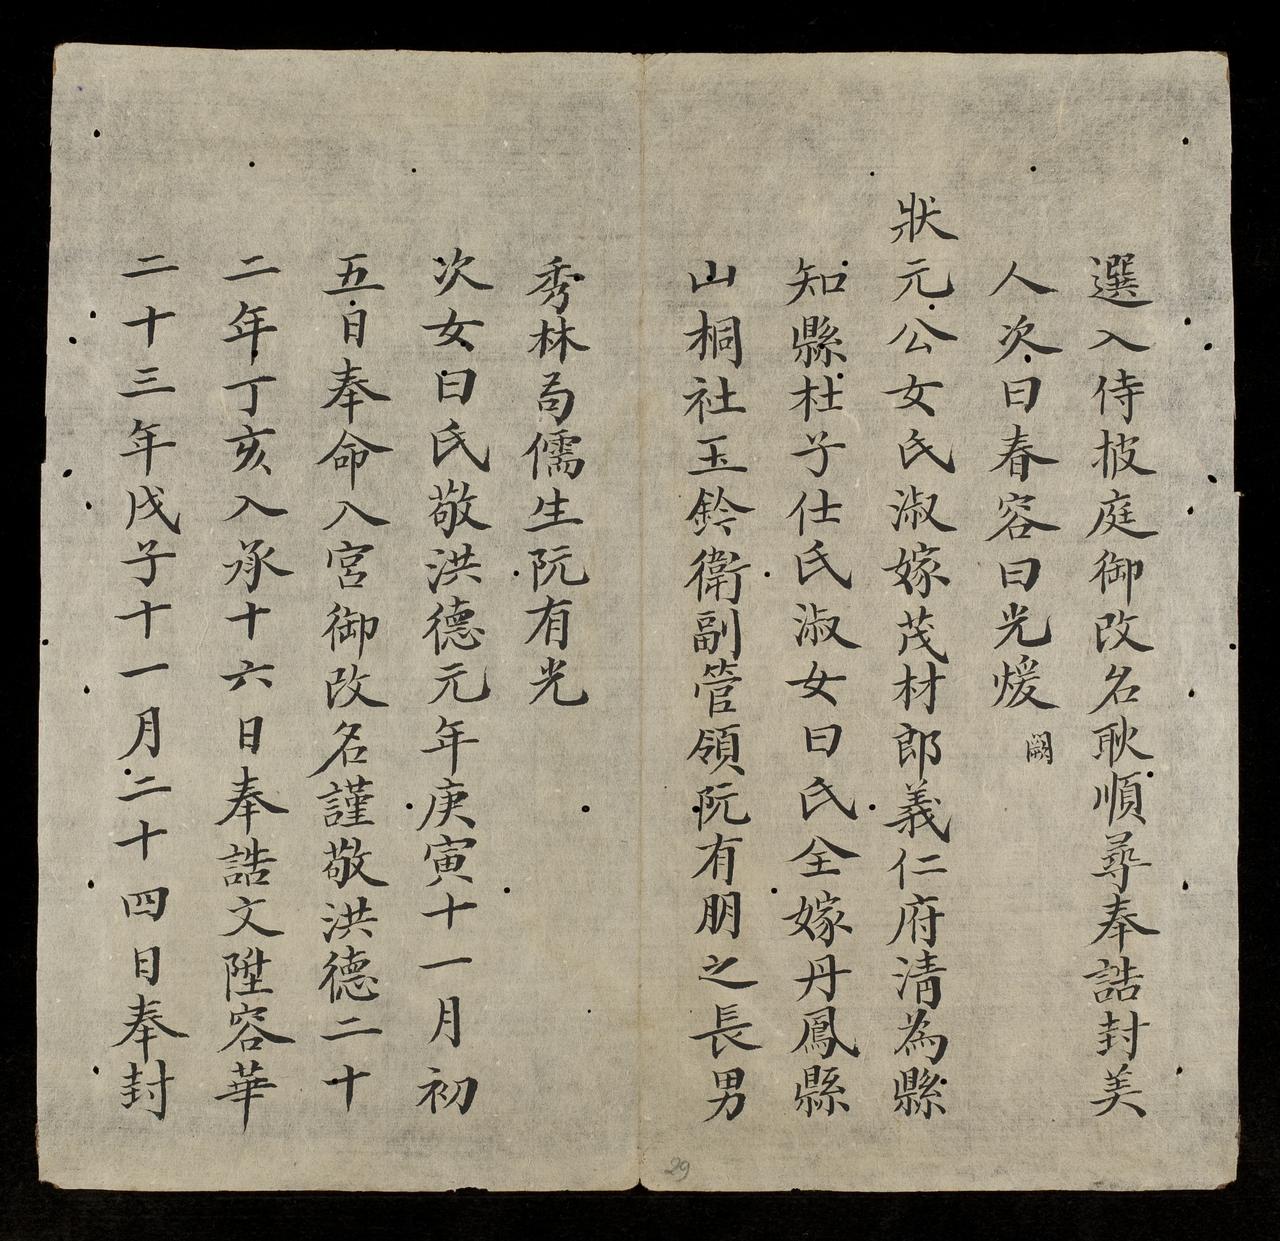 選入侍掖庭御改名耿順尋奉誥封美
人次曰春容曰光煖
闕
狀元公女氏淑嫁茂材郎義仁府清為縣
知縣杜子仕氏淑女曰氏全嫁丹鳳縣
山桐社玉鈐衛副管領阮有朋之長男
秀林局儒生阮有光
次女曰氏敬洪德元年庚寅十一月初
五日奉命入宮御改名謹敬洪德二十
二年丁亥入承十六日奉誥文陞容華
二十三年戊子十一月二十四日奉封
29